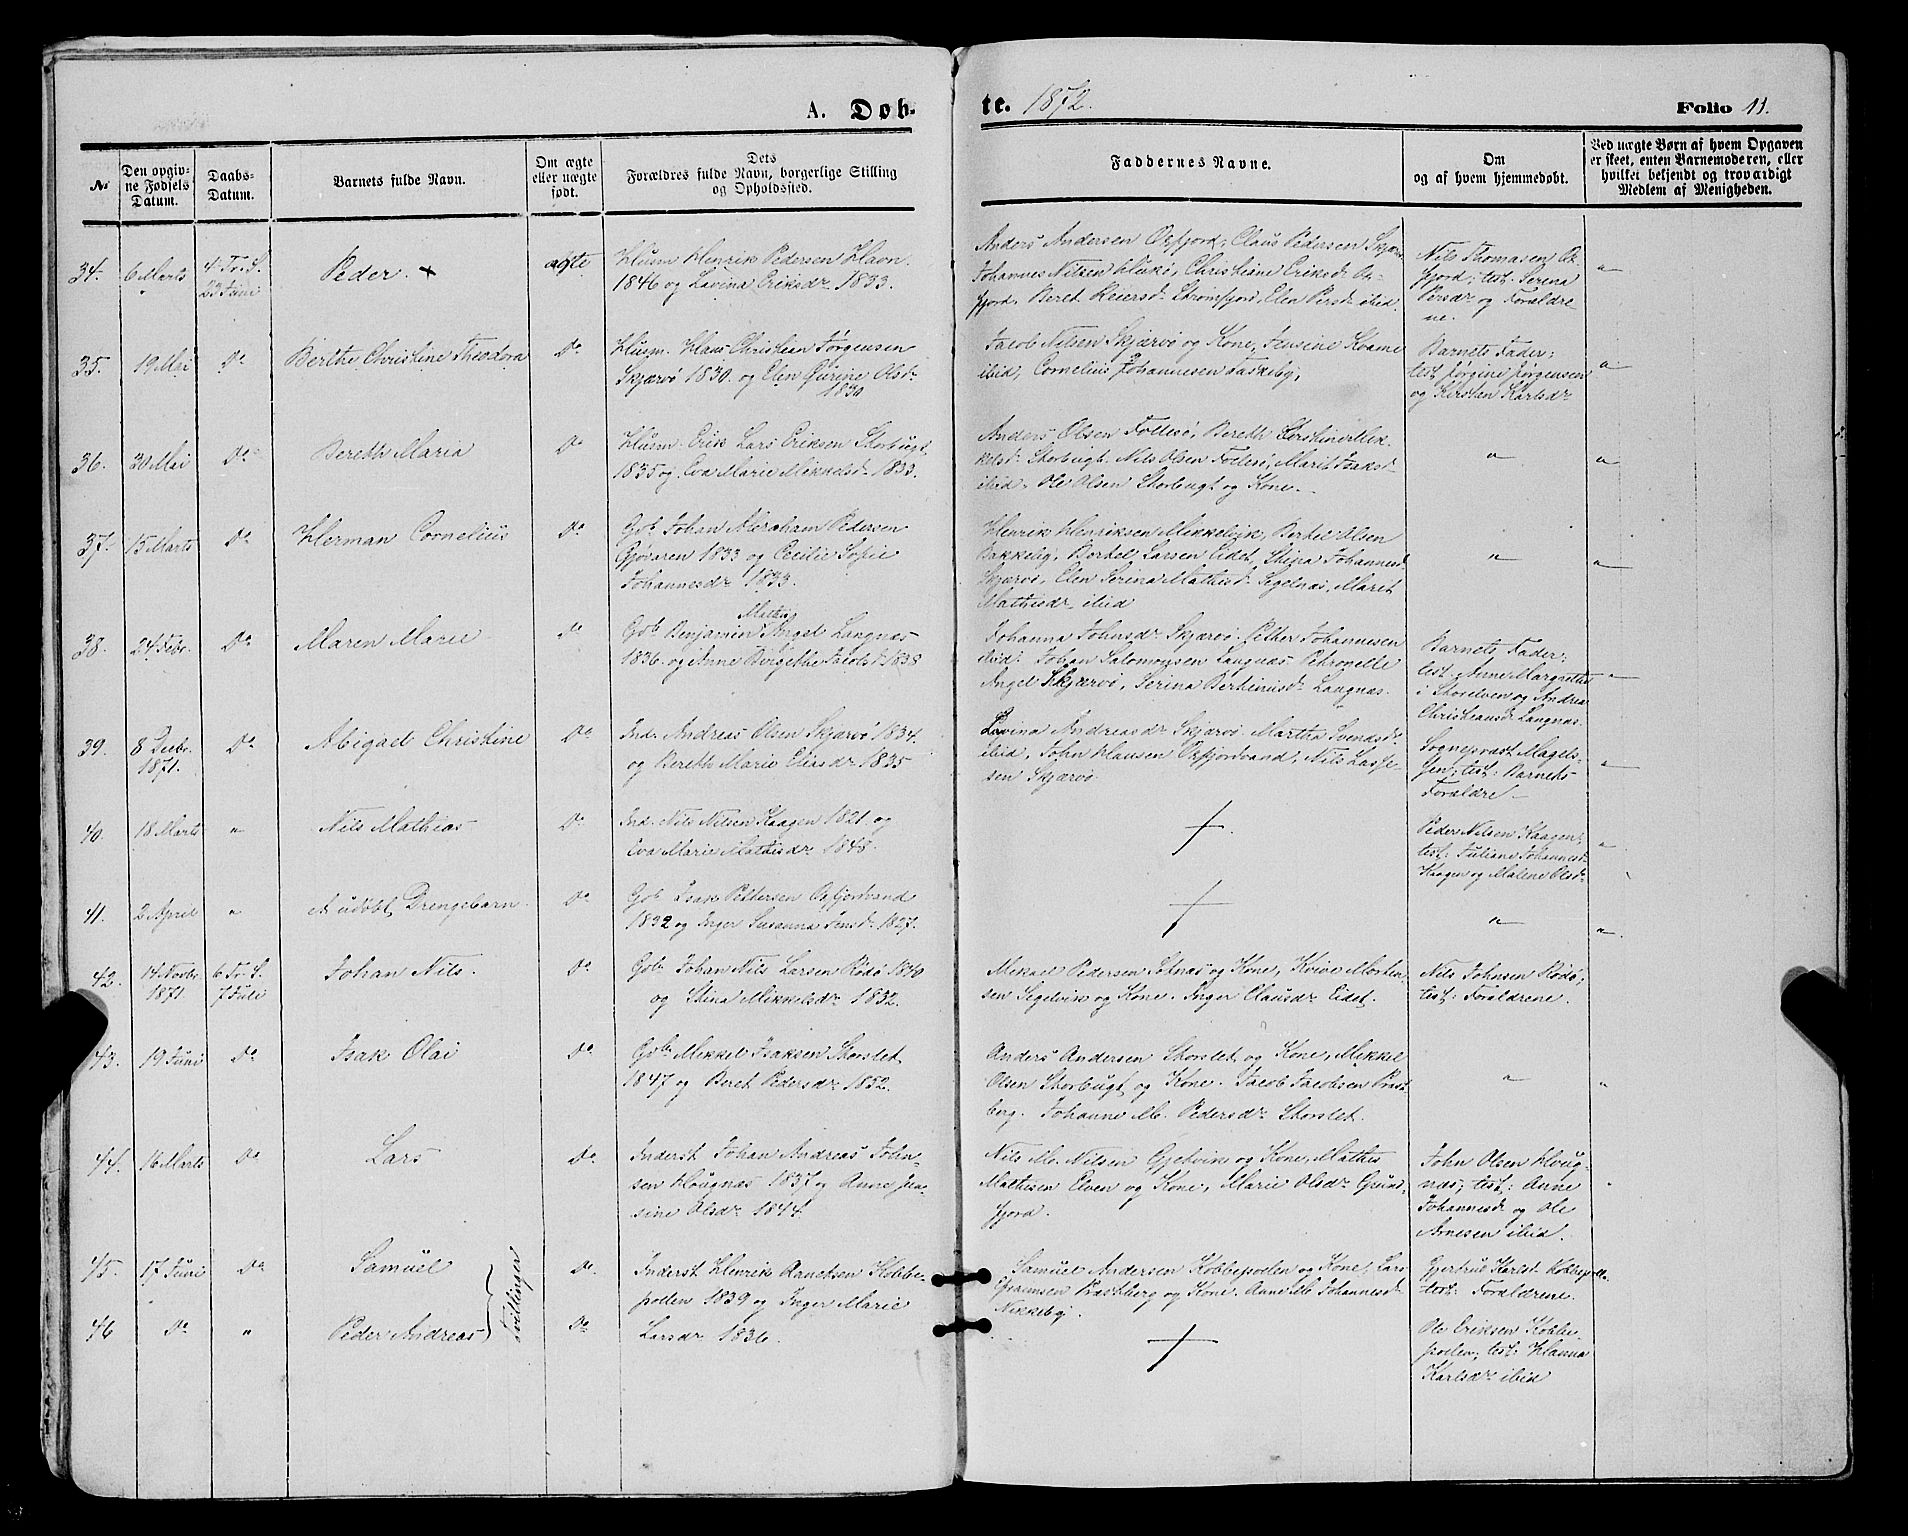 A. Døb-
te. 1872.
Folio 11.
No
Den opgiv-
ne Fødsels
Datum.
Daabs-
Datum.
Barnets fulde Navn.
Om ægte
eller uægte
født.
Dets
Forældres fulde Navn, borgerlige Stilling
og Opholdssted.
Faddernes Navne.
Om
og af hvem hjemmedøbt.
Ved uægte Børn af hvem Opgaven
er skeet, enten Barnemoderen, eller
hvilket bekjendt og troværdigt
Medlem af Menigheden.
34. 6 Marts
4. Tr. S.
23 Juni
Peder. +
ægte
Husm Henrik Pedersen Havn
1846 og Lavina Eriksdr 1833.
Anders Andersen Oxfjord, Claus Pedersen
Johannes Nilsen Christine Eriksd Ox-
fjord. Beret Reiersd. Strømfjord, Elen Persd. ibid.
Nils Thomasen Ox-
fjord; test. Serena
Persdr og Forældre
ne.
"
35. 19 Mai Do
Berthe Christine Theodora
Do
Husm. Hans Christian Jørgensen
Skjærvø 1830. og Elen Olsdr
1830
Jacob Nilsen Skjærvø og Kone, Kvame
ibid, Cornelius Johannesen Taskeby,
Barnets Fader;
test Jørgine Jørgensen
og Kirsten Karlsdr
"
36. 30 Mai Do
Bereth Maria
Do
Husm. Erik Lars Eriksen Storbugt
1835 og Eva Marie Mikkelsd. 1833.
Anders Olsen Follesø, Bereth Mik-
kelsd. Storbugt. Nils Olsen Follesø, Marit Isaksd
ibid, Ole Olsen Storbugt og Kone.
"
"
37. 15 Marts Do
Herman Cornelius
Do
Gdb Johan Abraham Pedersen
Gjøvaren 1833 og Cecilie Sofie
Johannesdr 1833.
Henrik Henriksen Mikkelvik, Berteel Olsen
Bakkeby, Bertel Larsen Eidet, Stina Johannesd.
Skjærvø, Elen Serina Mathisd. Segelnæs, Maret
Mathisdr ibid
"
"
38. 24 Febr. Do
Maren Marie
Do
Mathis
Gdb Benjamin Angel Langnæs
1836. og Anne Birgithe Jacobsd. 1838
Johanna Johnsdr Skjærvø. Petter Johannesen
ibid. Johan Salomonsen Langnæs. Petronelle
Angel Skjærvø, Serina Langnæs.
Barnets Fader;
test. Anne Margrethe
i Storelven og Andrea
Christiansd. Langnæs.
"
39. 8 Decbr.
1871.
Do
Abigael Christine
Do
Ind. Andreas Olsen Skjærvø 1834.
og Bereth Marie Eliasdr 1835
Lovina Andreasdr Skjærvø. Martha Svendsd.
ibid, John Hansen Oxfjordvand, Nils Lasse-
sen Skjærvø
Sognepræst Magels-
sen; test: Barnets
Forældre
"
40. 18 Marts "
Nils Mathias
Do
Ind. Nils Nilsen Kaagen 1821. og
Eva Marie Mathisdr 1848.
+
Peder Nilsen Kaagen;
test. Juliane Johannesd.
Kaagen og Malene Olsd.
"
41. 2 April "
et udøbt Drengebarn.
Do
Gdb Isak Pettersen Oxfjordvand
1832 og Inger Susanna Jensd. 1827.
+
"
"
42. 14 Novbr
1871.
6 Tr. S.
7 Juli
Johan Nils.
Do
Gdb. Johan Nils Larsen Rødø 1840
og Stina Mikkelsdr 1832.
Mikael Pedersen Sotnæs og Kone, Morten-
sen Segelvik og Kone. Inger Clausdr Eidet.
Nils Johnsen Rødø;
test: Forældrene.
43. 19 Juni Do
Isak Olai
Do
Gdb. Mikkel Isaksen Storslet
1847 og Beret Pedersdr 1852.
Anders Andersen Storslet og Kone, Mikkel
Olsen Storbugt og Kone. Jacob Jacobsen Præst-
berg. Johanne M. Pedersdr Storslet.
"
"
44. 16 Marts Do
Lars
Do
Inderst Johan Andreas John-
sen Hougnæs 1837 og Anne Jen-
sine Olsdr 1844.
Nils M. Nilsen Gjetvik og Kone, Mathis
Mathisen Elven og Kone, Marie Olsdr Grund-
fjord.
John Olsen Houg-
næs; test: Anne
Johannesd. og Ole
Arnesen ibid.
45. 17 Juni Do
Samuel
Tvillinger
Do
Inderst Henrik Arnetsen Kobbe-
pollen 1839 og Inger Marie
Larsdr 1836.
Samuel Andersen Kobbepollen og Kone, Lars
Præstberg og Kone. Anne M. Johannesd.
Nikkeby.
Gjertrud Karlsd. Kobbepollen
test: Forældrene.
46 Do "
Peder Andreas
Do
+
Ole Eriksen Kobbe-
pollen; test: Hanna
Karlsdr ibid